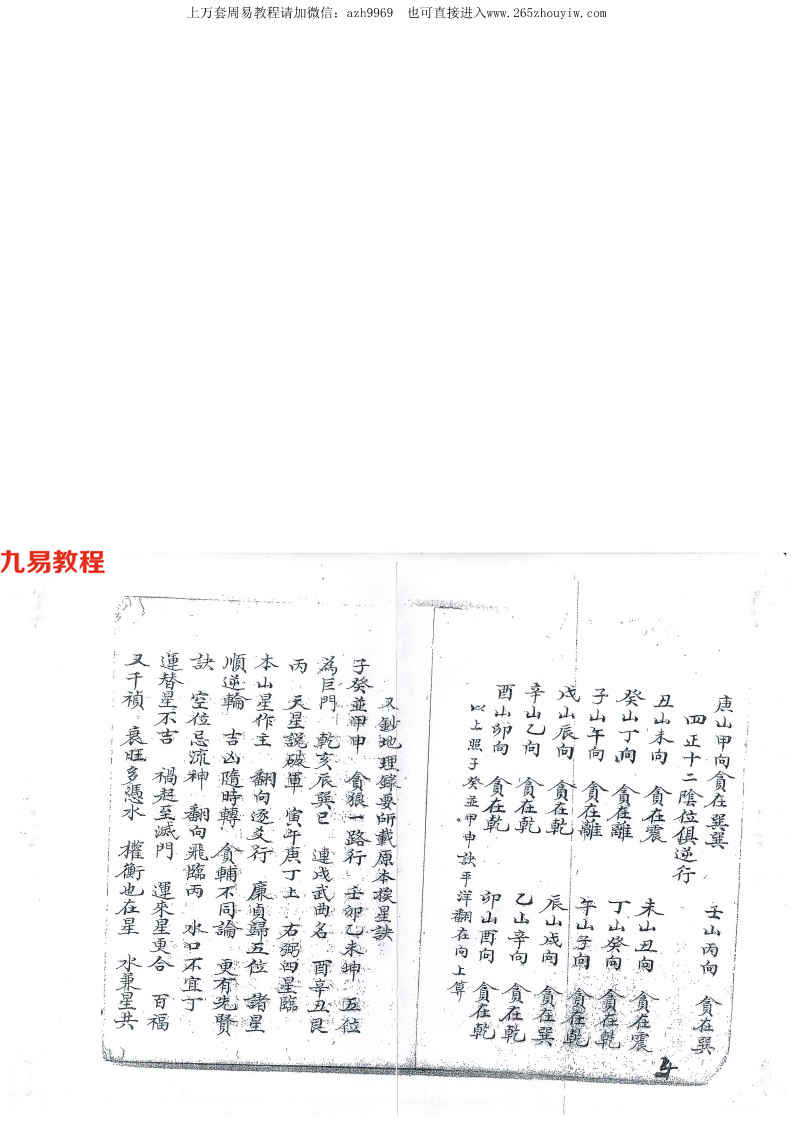 上万套周易教程请加微信：azh9969　也可直接进入www.265zhouyiw.com
九易教程
庚山甲向貪在巽巽　壬山丙向　貪在巽
四正十二陰位俱逆行
丑山未向　貪在震　未山丑向　貪在震
癸山丁向　貪在離　丁山癸向　貪在乾
子山午向　貪在離　午山子向　貪在乾
戌山辰向　貪在乾　辰山戌向　貪在巽
辛山乙向　貪在乾　乙山辛向　貪在乾
酉山卯向　貪在乾　卯山酉向　貪在乾
以上照子癸並甲申訣平洋翻在向上算
又鈔地理錄要所載原本挨星訣
子癸並甲申　貪狼一路行　壬卯乙未坤　五位
為巨門　乾亥辰巽巳　連戌武曲名　酉辛丑艮
丙　天星說破軍　寅午庚丁上　右弼四星臨
本山星作主　翻向逐爻行　廉貞歸五位　諸星
順逆輪　吉凶隨時轉　貪輔不同論　更有先賢
訣　空位忌流神　翻向飛臨丙　水口不宜丁
運替星不吉　禍起至滅門　運來星更合　百福
又千禎　衰旺多憑水　權衡也在星　水兼星共